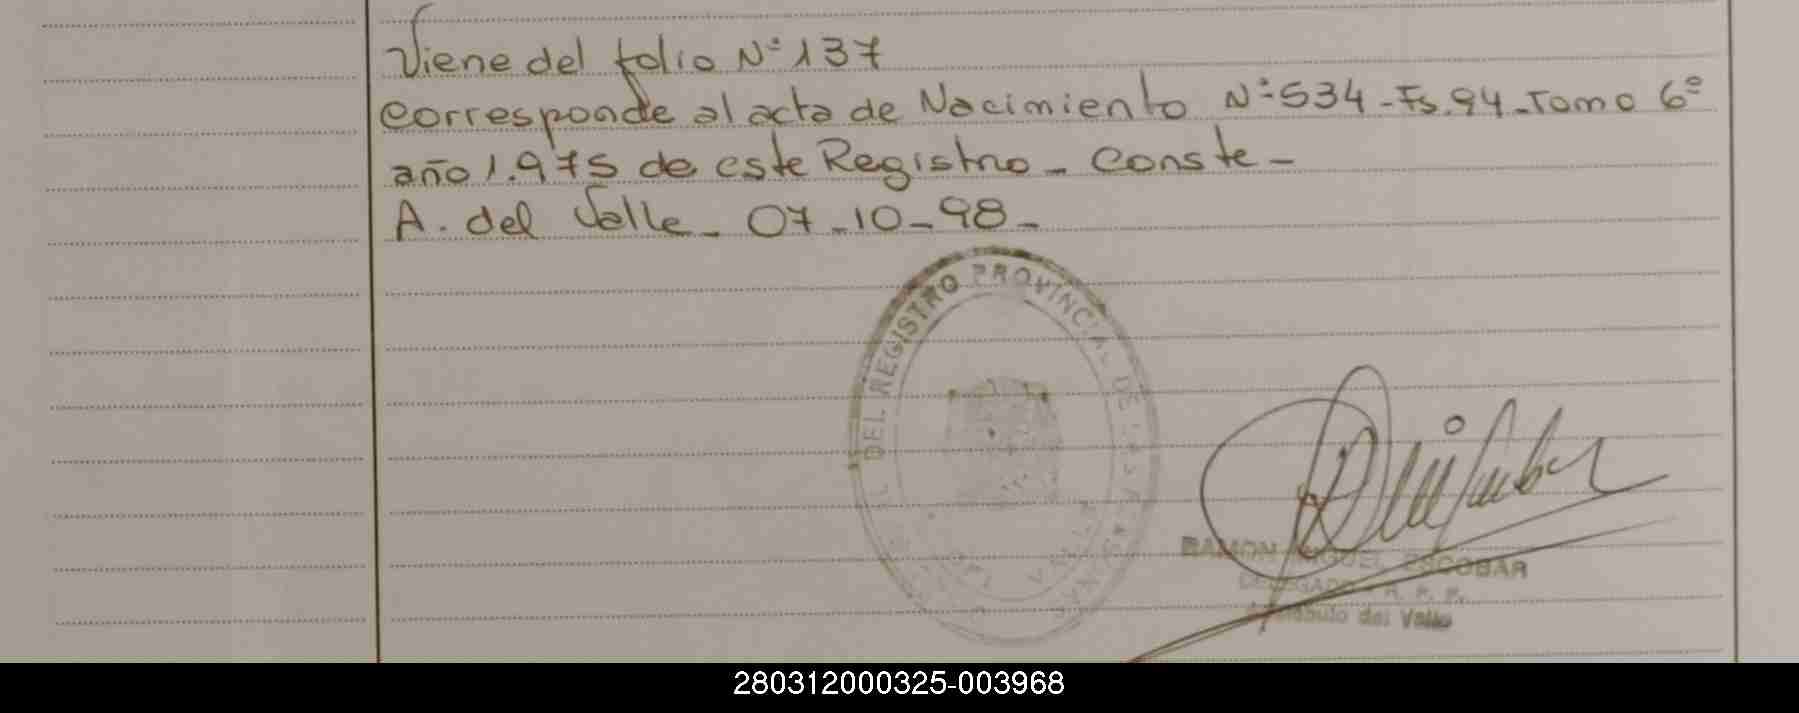 Viene del folio Nº 137
Corresponde al acta de Nacimiento Nº 534 - Fs. 94 - Tomo 6º
año 1.975 de este Registro - Conste -
A. del Valle - 07 - 10 - 98 -
DEL REGISTRO PROVINCIAL DE LAS PERSONAS
RAMON MIGUEL ESCOBAR
DELEGADO R. P. P.
del Valle
280312000325-003968